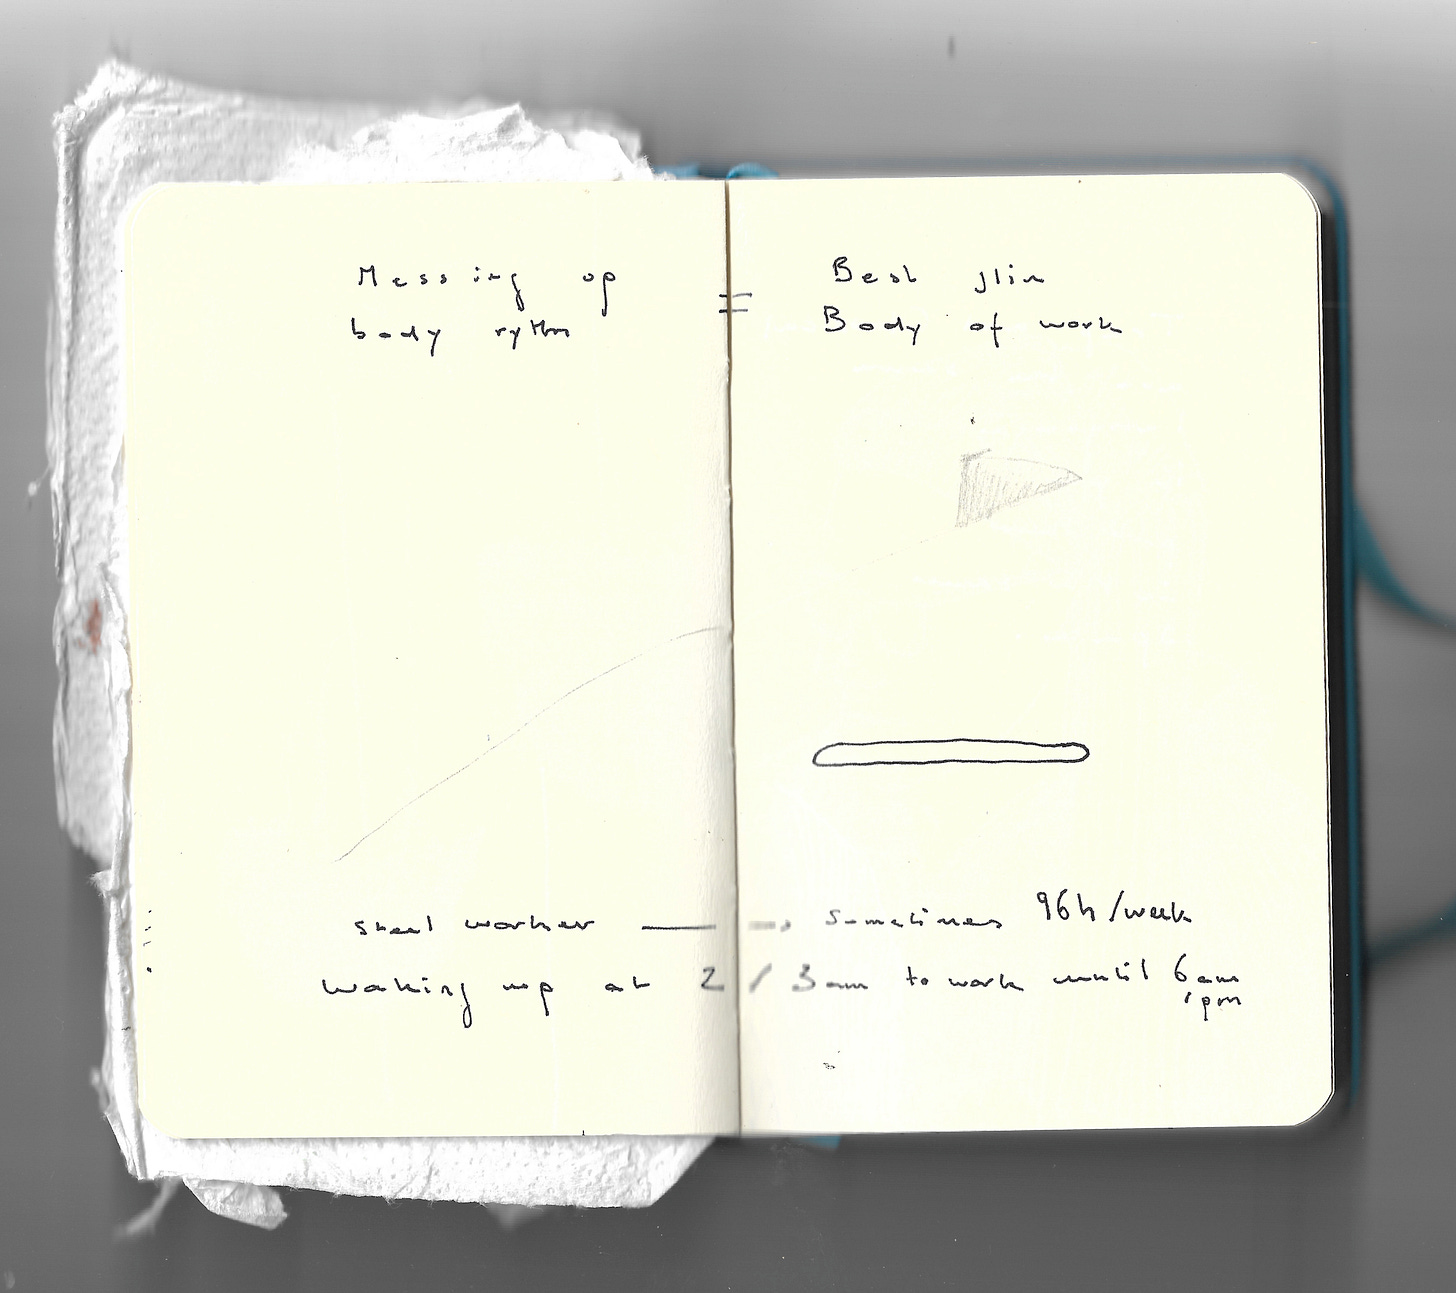 Messing up = Best slim
body rythm Body of work
steel worker → sometimes 96h/week
Waking up at 2 / 3am to work until 6am
/pm